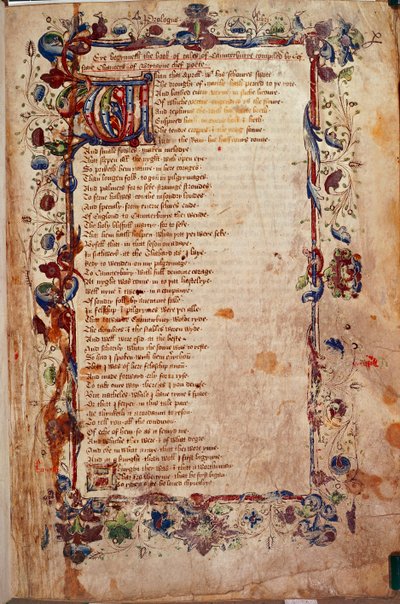 Prologus
Here begynneth the book of tales of Caunterbury compiled by Gef
fraie Chaucers of Brytayne chef poete
Whan that Aprill with his schoures swote
The drought of March hath perced to þe rote
And bathed euery veyne in suche licoure
Of whiche vertue engendred is the floure
And zephirus eke with his swete
Enspired hath in euery holt & heth
The tendre croppes & the yong sonne
in the Ram his half cours ronne
And smale foules maken melodye
That slepen all the nyght with open eye
So priketh hem nature in here corages
Than longen folk to gon in pilgrymages
And palmers for to seke straunge strondes
To ferne halwes in sondry londes
And specialy from euery schires ende
Of Engelond to Caunterbury thei wende
The holy blisful martir for to seke
That hem hath holpen whan þat þei were seke
Byfell that in that seson on a daye
In Suthwerk at the Tabard as I laye
Redy to wenden on my pilgrymage
To Caunterbury with full deuoute corage
At nyght was come in to þat hostelrye
Well nyne & twenty in a companye
Of sondry folk by auenture falle
In felaship & pilgrymes were þei alle
That towarde Caunterbury wolde ryde
The chambres & the stables weren wyde
And well were esed at the beste
And shortly whan the sonne was to reste
So had I spoken with hem euerichon
That I was of here felaship anon
And made forward erly for to ryse
To take oure way there as I you deuyse
But natheles while I haue tyme & space
Er that I ferper in this tale pace
Me thynketh it acordaunt to reson
To tell you all the condicion
Of eche of hem so as it semed me
And whiche they were & of what degre
And eke in what array that they were ynne
And at a knyght then woll I first bygynne
A knyght ther was & that a worthi man
That fro the tyme that he first bigan
To ryden out he loued chyualrye